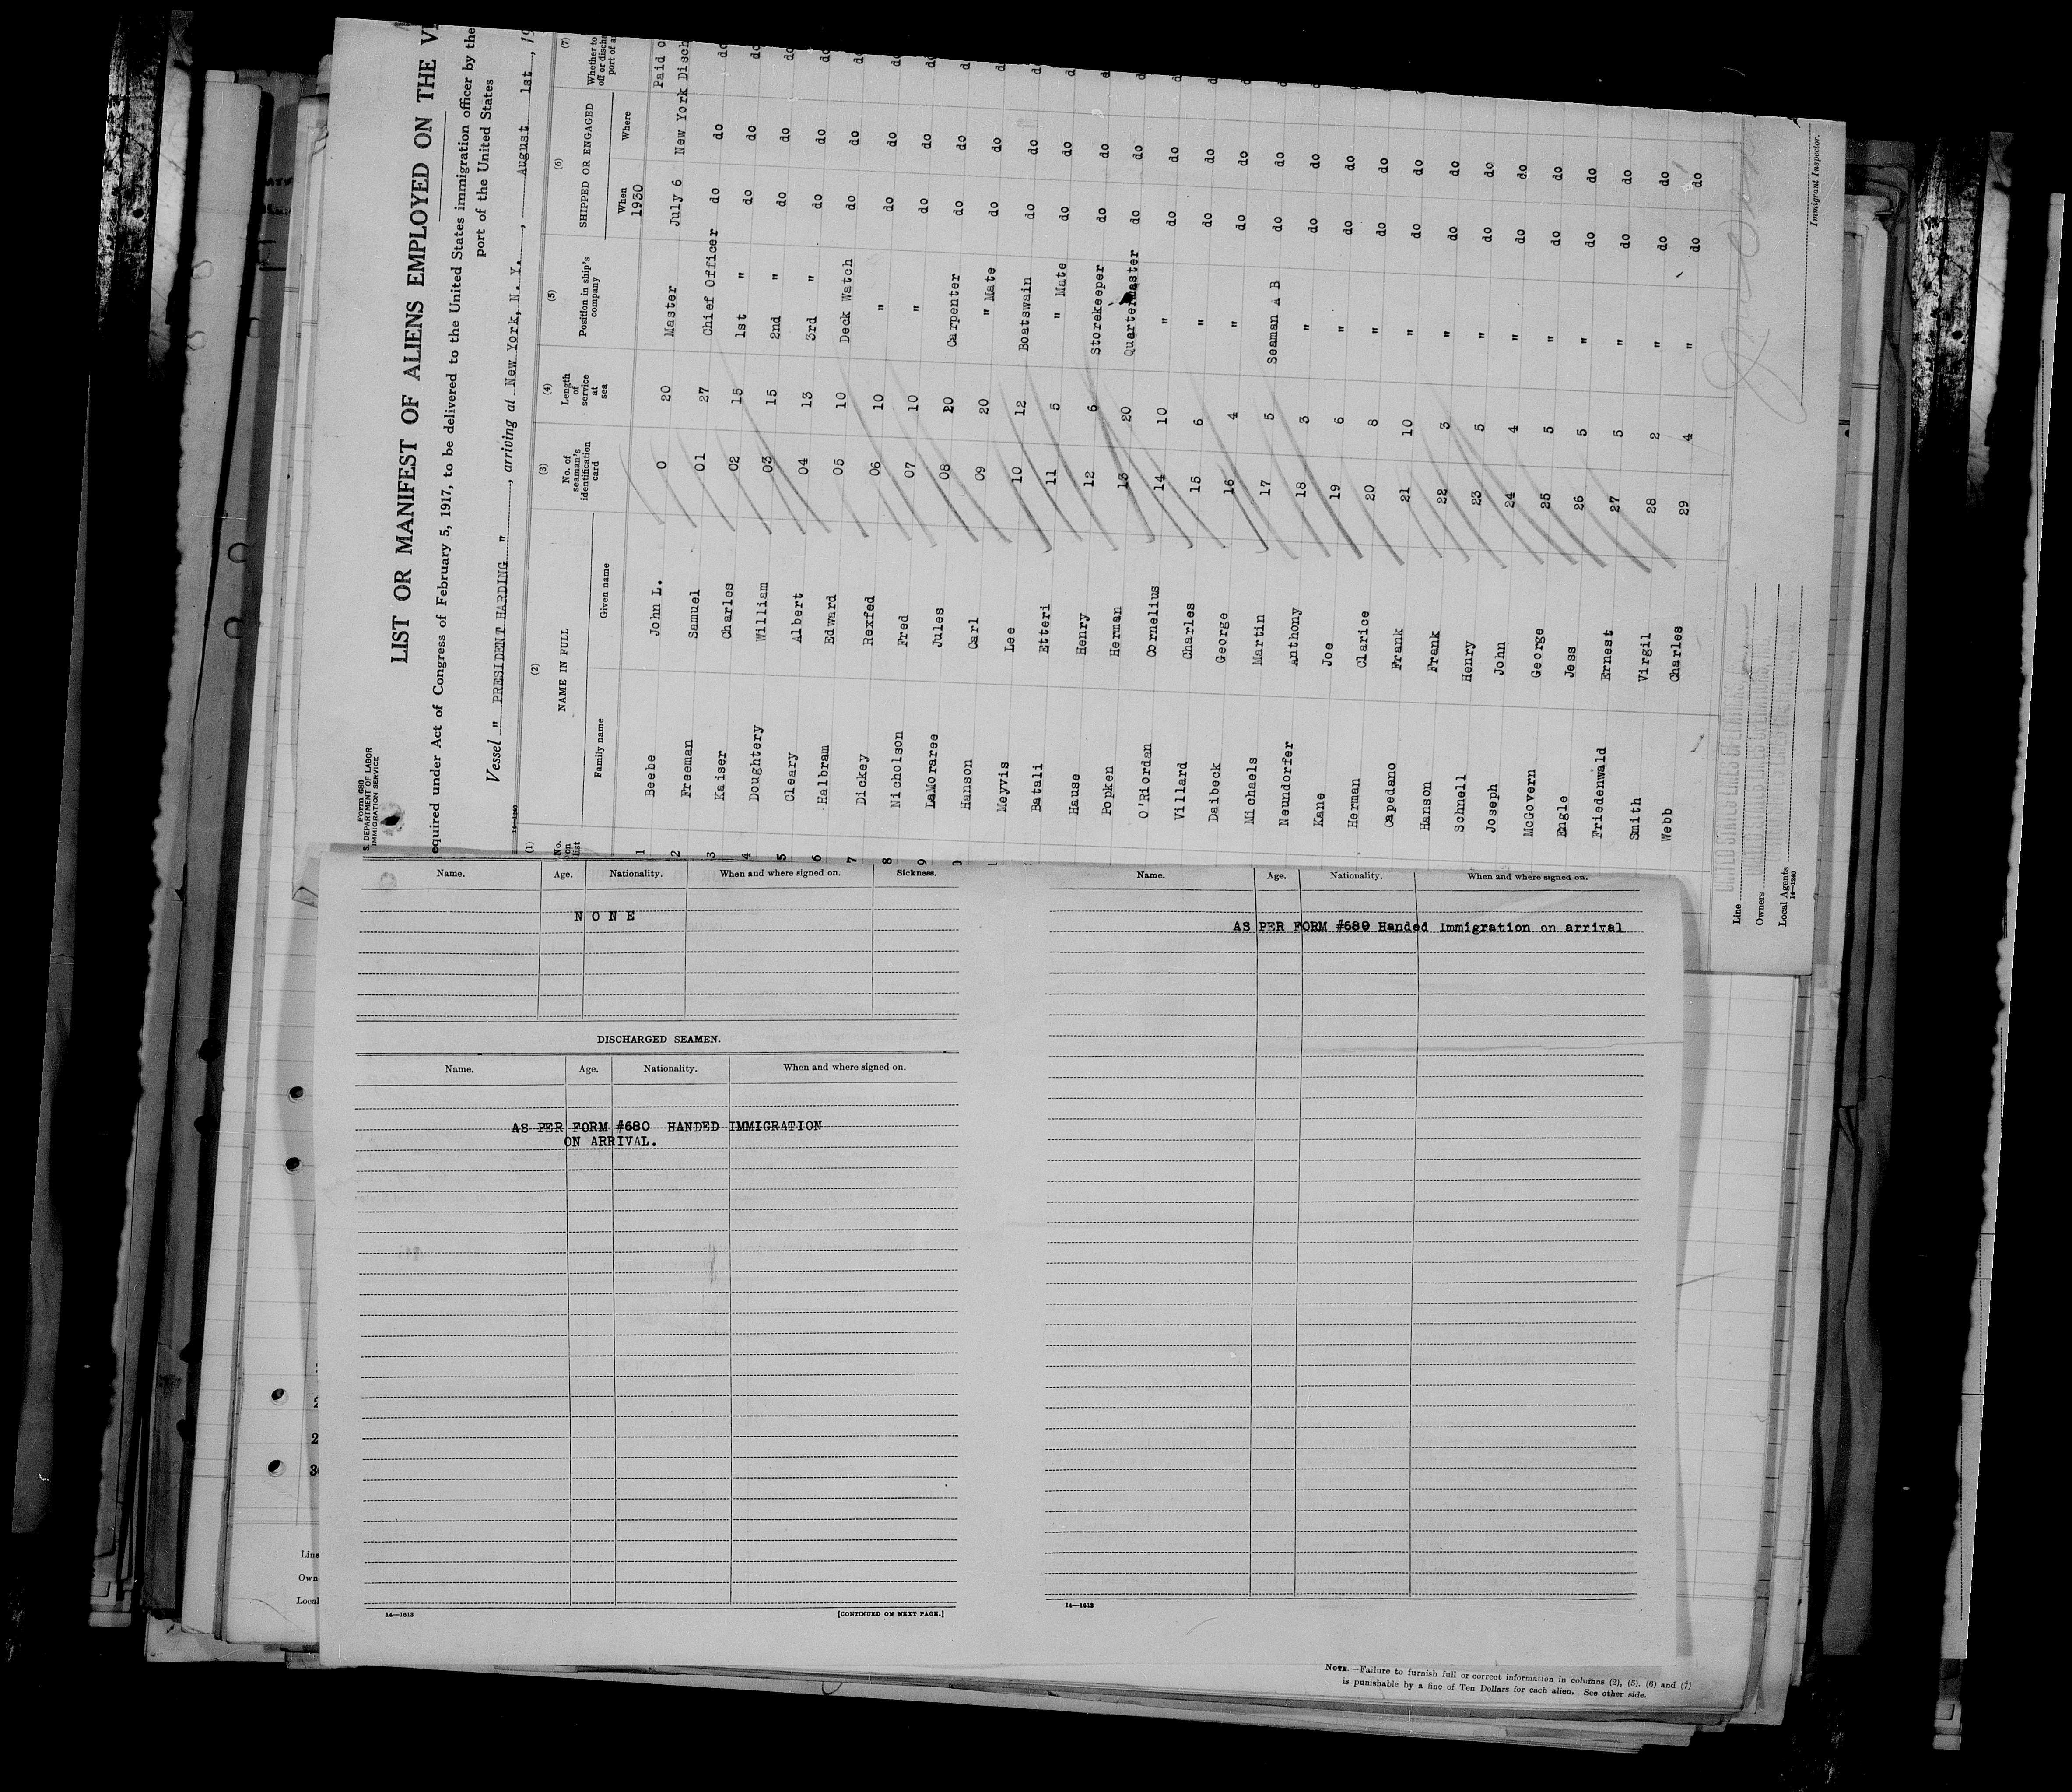 Form 686
S. DEPARTMENT OF LABOR
IMMIGRATION SERVICE
LIST OR MANIFEST OF ALIENS EMPLOYED ON THE
equired under Act of Congress of February 5, 1917, to be delivered to the United States immigration officer by the
port of the United States
Vessel " PRESIDENT HARDING ", arriving at New York, N. Y., August 1st, 19
14—1240
(1) (2) (3) (4) (5) (6) (7)
No. on list NAME IN FULL No. of seaman's identification card Length of service at sea Position in ship's company SHIPPED OR ENGAGED Whether to
off or discha
port of a
Family name Given name When Where
1930
1 Beebe John L. 0 20 Master July 6 New York Paid o
Disch
2 Freeman Samuel 01 27 Chief Officer do do do
3 Kaiser Charles 02 15 1st " do do do
4 Doughtery William 03 15 2nd " do do do
5 Cleary Albert 04 13 3rd " do do do
6 Halbram Edward 05 10 Deck Watch do do do
7 Dickey Rexfed 06 10 " do do do
8 Nicholson Fred 07 10 " do do do
9 LaMoraree Jules 08 20 Carpenter do do do
Hanson Carl 09 20 " Mate do do do
Meyvis Lee 10 12 Boatswain do do do
Batali Etteri 11 5 " Mate do do do
Hause Henry 12 6 Storekeeper do do do
Popken Herman 13 20 Quartermaster do do do
O'Riordan Cornelius 14 10 " do do do
Villard Charles 15 6 " do do do
Daibeck George 16 4 " do do do
Michaels Martin 17 5 Seaman A B do do
Neundorfer Anthony 18 3 " do do
Kane Joe 19 6 " do do
Herman Clarice 20 8 " do do
Capedano Frank 21 10 " do do
Hanson Frank 22 3 " do do
Schnell Henry 23 5 " do do
Joseph John 24 4 " do do
McGovern George 25 5 " do do
Engle Jess 26 5 " do do
Friedenwald Ernest 27 5 " do do
Smith Virgil 28 2 " do do
Webb Charles 29 4 " do do
Line
Owners
Local Agents
14—1240
Immigrant Inspector.
Name. Age. Nationality. When and where signed on. Sickness.
NONE
DISCHARGED SEAMEN.
Name. Age. Nationality. When and where signed on.
AS PER FORM #680 HANDED IMMIGRATION
ON ARRIVAL.
14—1613 [CONTINUED ON NEXT PAGE.]
Name. Age. Nationality. When and where signed on.
AS PER FORM #680 Handed Immigration on arrival
14—1613
Line
Own
Local
NOTE.—Failure to furnish full or correct information in columns (2), (5), (6) and (7)
is punishable by a fine of Ten Dollars for each alien. See other side.